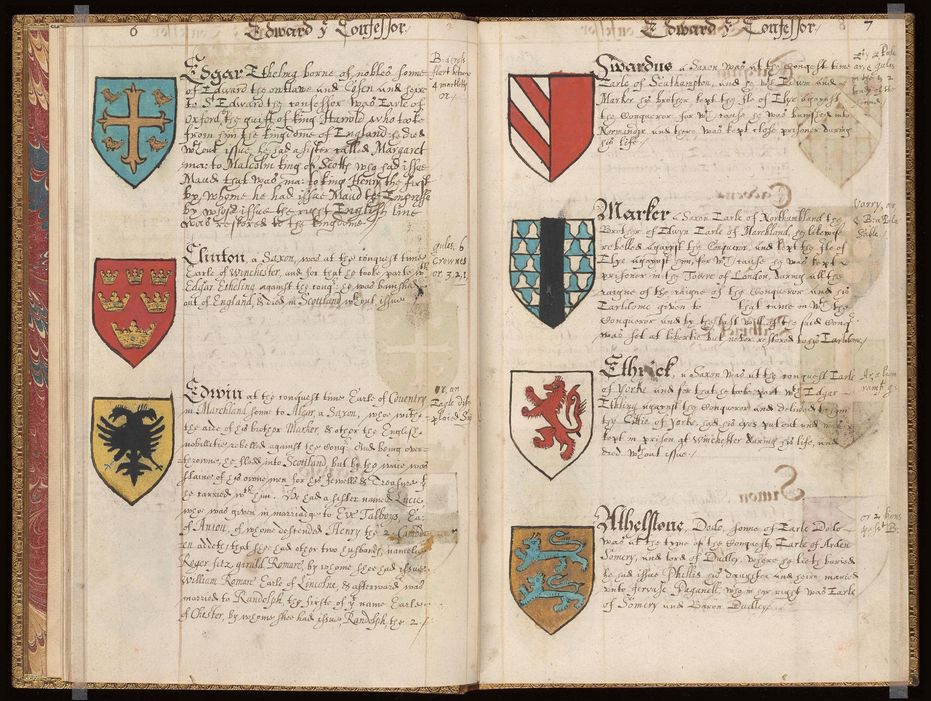 6
Edward y Confessor
Edgar Etheling borne of nobles sonne
of Edward the outlawe and Cosen and heire
to St Edward the confessor was Earle of
Oxford, the guift of king Harold who tooke
from him the kingdome of England he died
wthout issue, he had a sister called Margaret
ma: to Malcolm king of Scotts who had issue
Maud that was ma: to king Henry the first
by whome he had issue Maud the Empresse
by whose issue the right English line
was restored to the kingdome
4 martletts
or
Clinton, a Saxon, was at the conquest time
Earle of Winchester, and for that he tooke parte wth
Edgar Etheling against the conq: he was banished
out of England, & died in Scottland wthout issue
gules, 6
Crownes
or, 3.2.1.
Edwin at the conquest time Earle of Coventry
in Marchland, sonne to Algar, a Saxon, who with
the aide of his brother Marker, & other the English
nobillitie rebelled against the conq: And being over
throwne, he fled into Scottland but by the waie was
slaine of his owne men for his Jewells & Treasure
he carried wth him. He had a sister named Lucie
who was given in marriadge to Eve Talboys, Ea:
of Aniou, of whome descended Henry the 2. Cambd
en addeth that shee had other two husbands, namelie
Roger fitz girald Romare, by whome shee had issue
William Romare Earle of Lincolne, & afterward was
maried to Randolph the firste of y name Earle
of Chester, by whome shee had issue Randolph the 2.
or, an
Egle
7
Edward y Confessor
Siwardus a Saxon was at the conquest time
Earle of Southampton, and wth Edwin and
Marker his brother kept the Ile of Elye against
the Conqueror for wch cause he was banished into
Normandie and there was kept close prisoner during
his life
Marker a Saxon Earle of Northumbland the
Brother of Edwyn Earle of Marchland, he likewise
rebelled against the Conqueror, and kept the Ile of
Elye against him, for wch cause he was kept
prisoner in the Tower of London, during all the
raigne of the raigne of the Conqueror and his
Earldome given to that came in wth the
Conqueror and by the last will of the said Conq:
was set at libertie but never restored to his Earldom
Varry, or,
a Pale
Sable
Ethrick, a Saxon was at the conquest Earle
of Yorke and for that he tooke part wth Edgar
Etheling against the Conqueror and
the Cittie of Yorke, had his eyes put out and
kept in prison at Winchester during his life, and
died wthout issue
Ar, a lion
ramp: g:
Athelstone, Dodo, sonne of Earle Dodo
was at the tyme of the Conquest, Earle of Arden
Somery, and lord of Dudley, where he lieth buried
he had issue Phillis his daughter and heire, maried
unto Gervise Paganell, whoe in her right was Earle
of Somery and Baron Dudley
or 2 lions
pass: B: